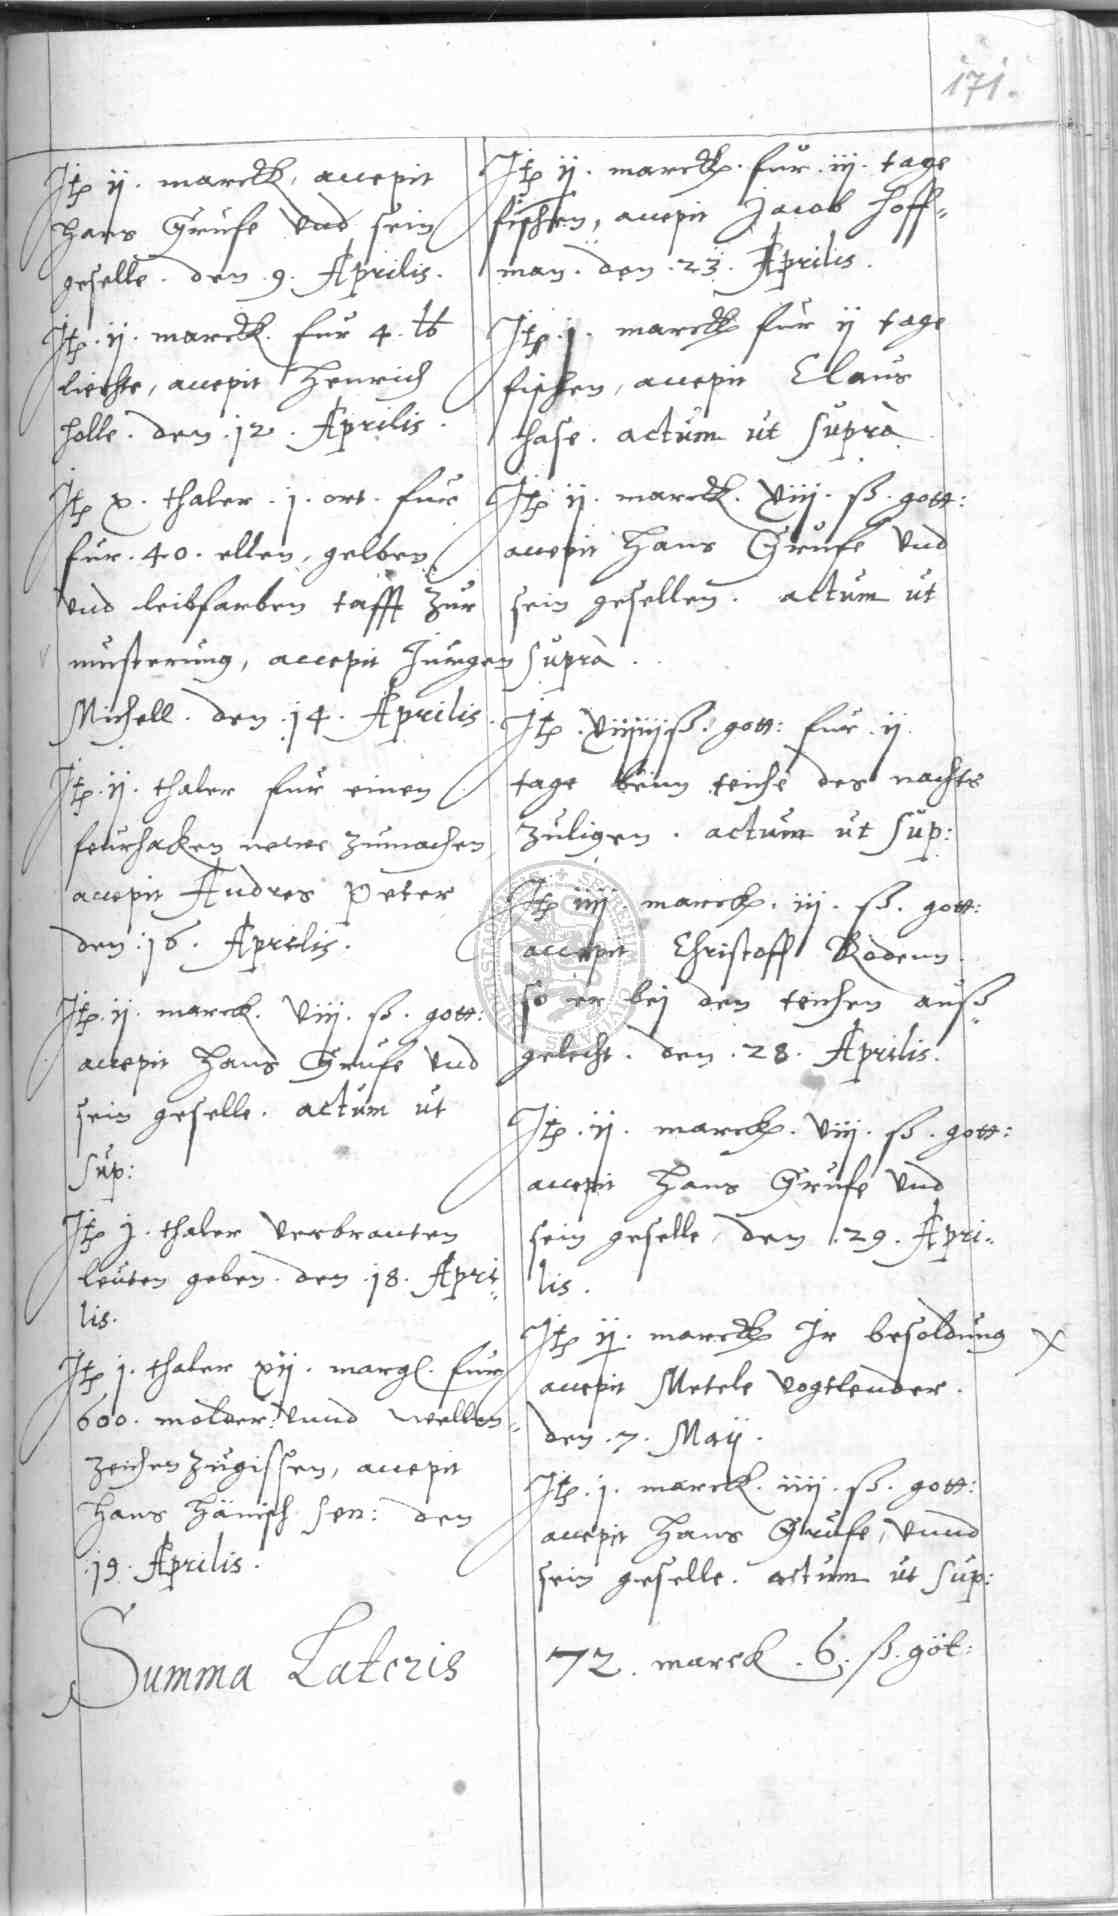 171.
Jtp ij. marck, accepit
Hans Grufe Vnd sein
geselle. den .9. Aprilis.
Jtp. ij. marck. fur 4. lb
liechte, accepit Henrich
Holle. den .12. Aprilis.
Jtp x. thaler .j. ort. fur
fur .40. ellen, gelben
Vnd leibfarben tafft Zur
musterung, accepit Jurgen
Michell. den .14. Aprilis.
Jtp. ij. thaler fur einen
feurhaken newe zumachen,
accepit Andres Peter
den .16. Aprilis.
Jtp. ij. marck. Viij. ß. gott:
accepit Hans Grufe Vnd
sein geselle. actum ut
sup:
Jtp j. thaler Verbranten
leuten geben. den .18. Apri-
lis.
Jtp j. thaler xij. margl. fur
600. molder: Vnnd wellen-
zeichen zugissen, accepit
Hans Hänisch sen: den
.19. Aprilis.
Summa Lateris
Jtp ij. marck. fur .iij. tage
fischen, accepit Jacob Hoff-
man. den .23. Aprilis.
Jtp. j. marck fur ij tage
fischen, accepit Claus
Hase. actum ut suprà
Jtp ij. marck. Viij. ß. gott:
accepit Hans Grufe Vnd
sein gesellen. actum ut
suprà.
Jtp. ß. gott: fur .ij.
tage beim teiche des nachts
zuligen. actum ut sup:
Jtp iiij marck. iij. ß. gott:
accepit Christoff Rodenn
so er bej den teichen auß-
gelecht. den .28. Aprilis.
Jtp. ij. marck. Viij. ß. gott:
accepit Hans Grufe Vnd
sein geselle, den .29. Apri-
lis.
Jtp ij. marck Jr besoldung
accepit Metele Vogtlender.
den .7. Maij.
Jtp. j. marck. iiij. ß. gott:
accepit Hans Grufe, Vnnd
sein geselle. actum ut sup:
72. marck .6. ß. göt: